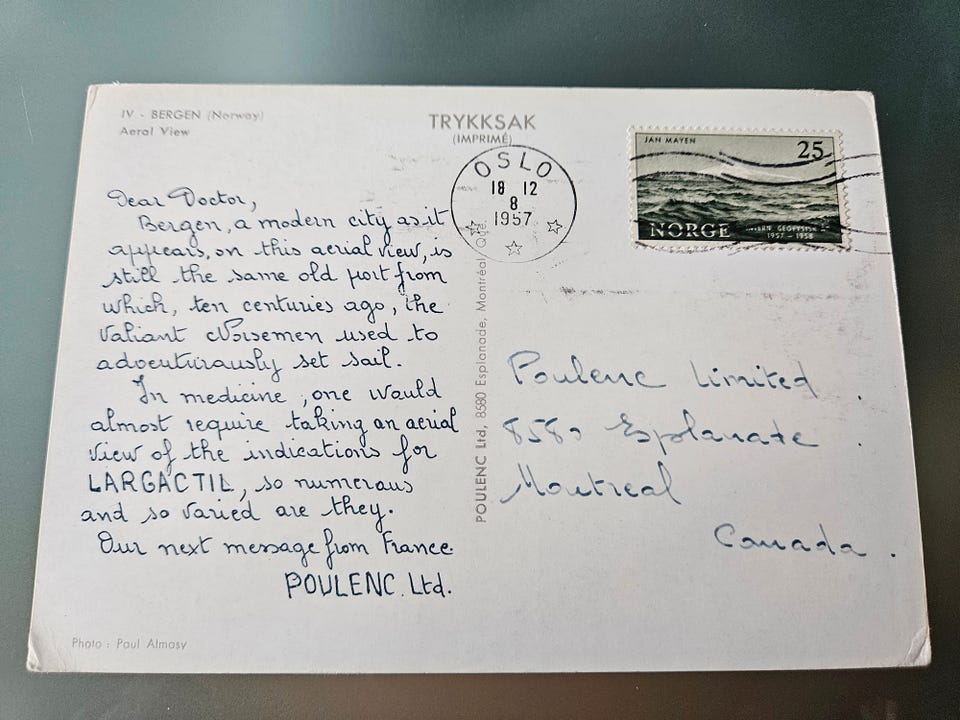 IV - BERGEN (Norway)
Aeral View
TRYKKSAK
(IMPRIMÉ)
OSLO
18 12
8
1957
JAN MAYEN
25
NORGE
INTERN. GEOFYSISK
1957 - 1958
Dear Doctor,
Bergen, a modern city as it
appears, on this aerial view, is
still the same old port from
which, ten centuries ago, the
valiant Norsemen used to
adventurously set sail.
In medicine, one would
almost require taking an aerial
view of the indications for
LARGACTIL, so numerous
and so varied are they.
Our next message from France.
POULENC Ltd.
POULENC Ltd, 8580 Esplanade, Montréal, Qué.
Poulenc Limited
8580 Esplanade
Montreal
Canada.
Photo : Paul Almasy